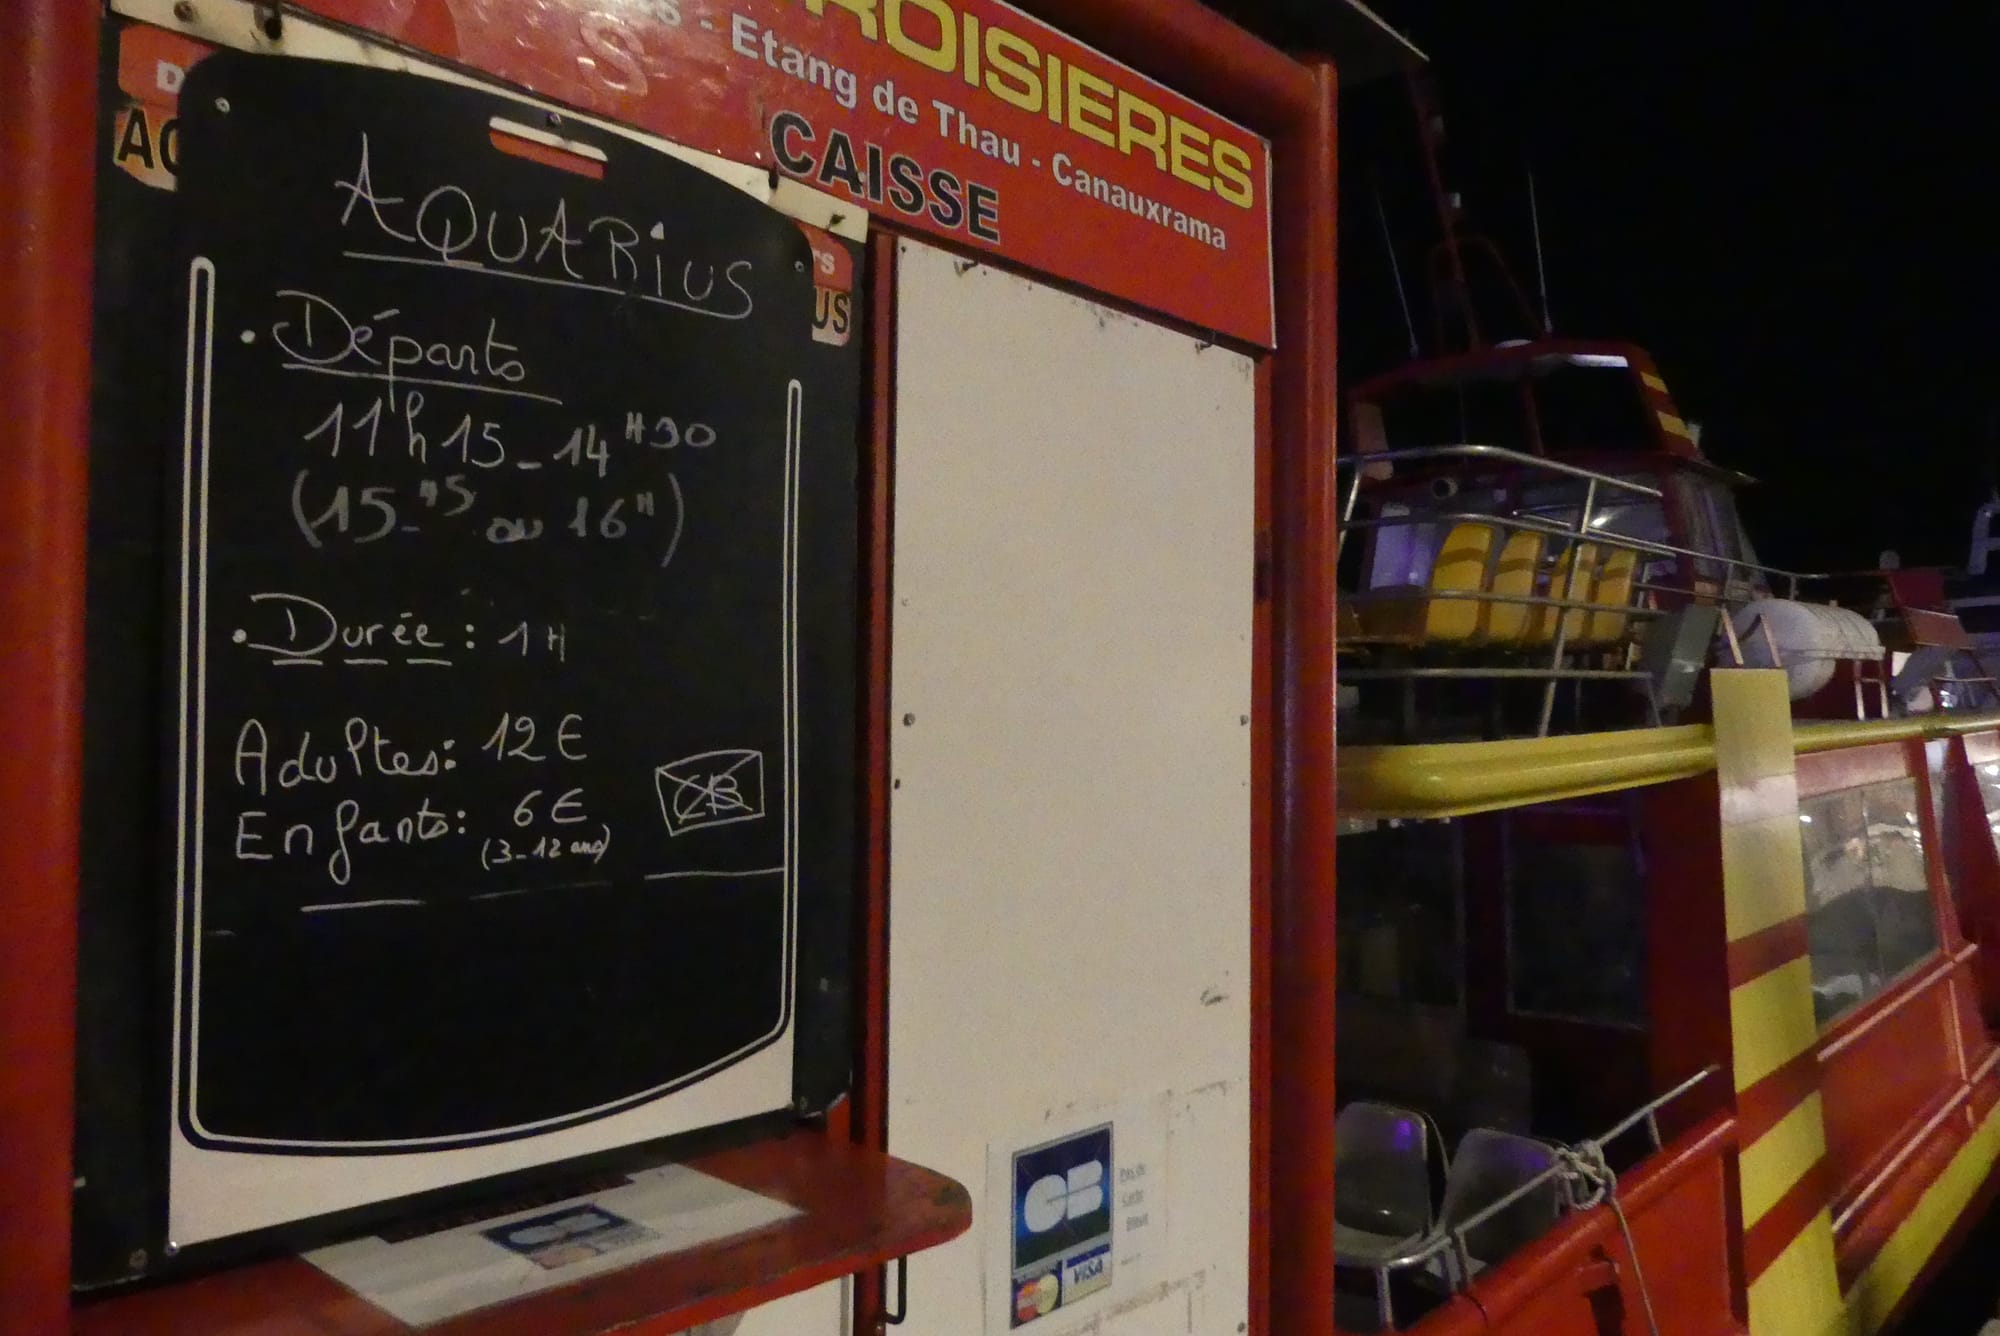 ROISIERES
s - Etang de Thau - Canauxrama
CAISSE
AQUARiUS
• Départs
11h15 - 14H30
(15-45 ou 16H)
• Durée : 1H
Adultes: 12€
Enfants: 6€
(3-12 ans)
CB
CB
Pas de
Carte
Bleue
VISA